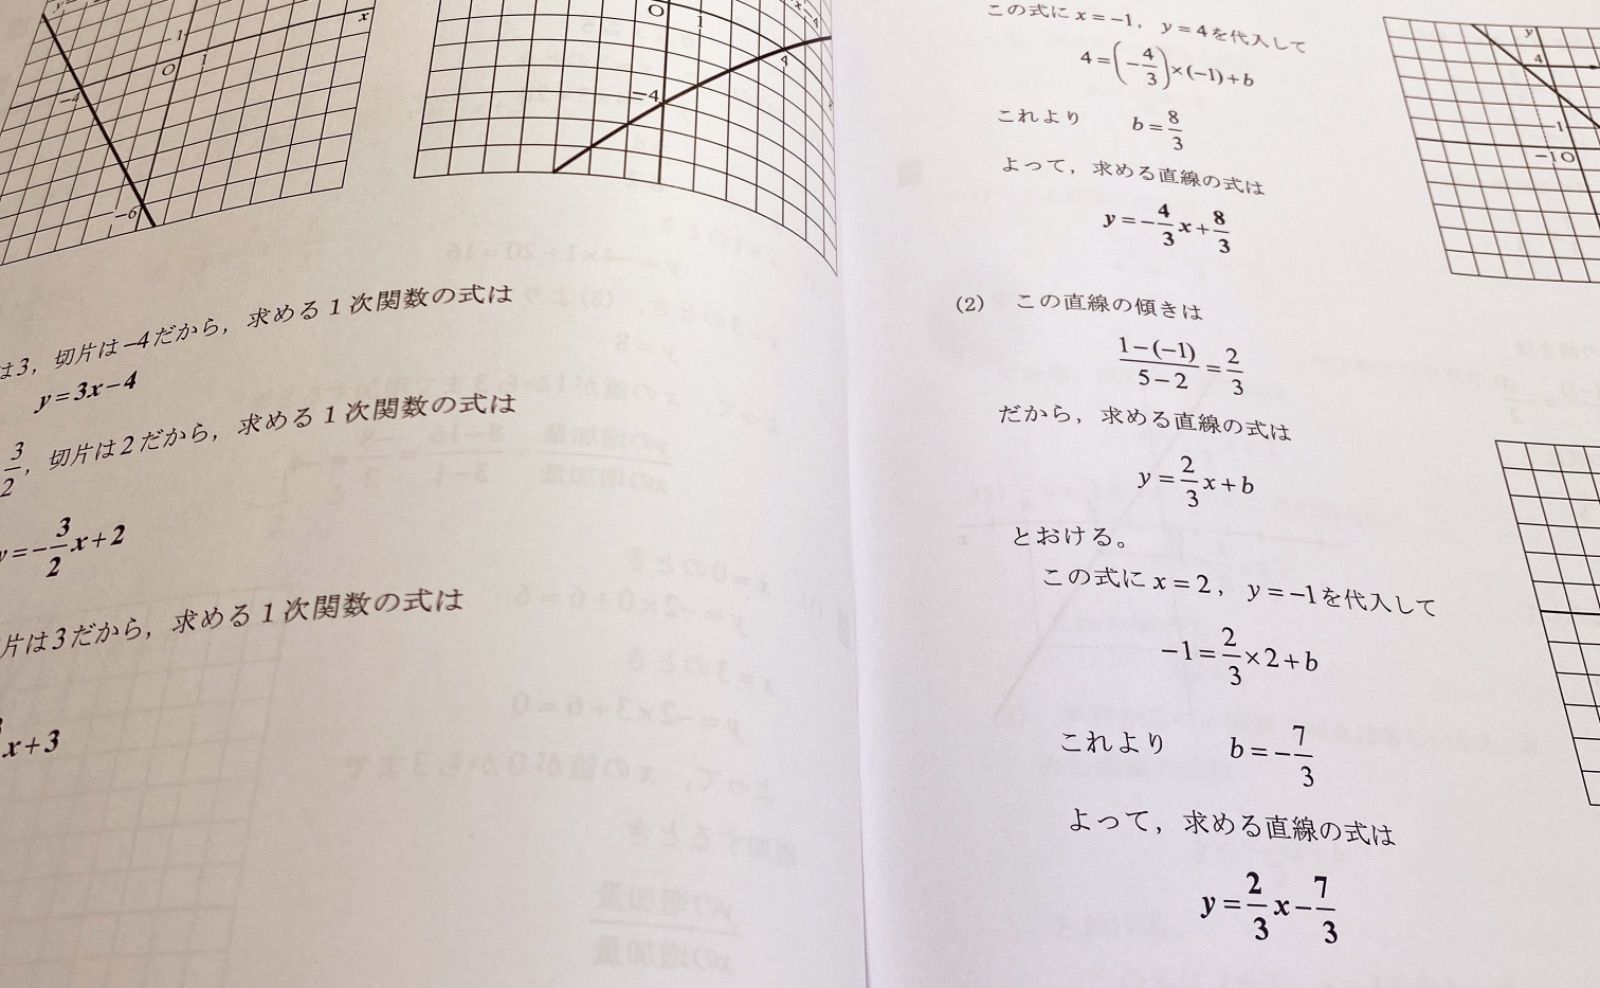 x
1
O
1
-4
-6
O
1
4
-4
は3，切片は-4だから，求める1次関数の式は
y=3x-4
3/2，切片は2だから，求める1次関数の式は
y=-3/2x+2
片は3だから，求める1次関数の式は
x+3
この式に x=-1，y=4を代入して
4=(-4/3)×(-1)+b
これより b=8/3
よって，求める直線の式は
y=-4/3x+8/3
y
4
-1
-1O
(2) この直線の傾きは
1-(-1)/5-2=2/3
だから，求める直線の式は
y=2/3x+b
とおける。
この式に x=2，y=-1を代入して
-1=2/3×2+b
これより b=-7/3
よって，求める直線の式は
y=2/3x-7/3